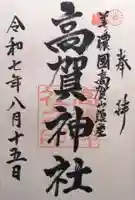 奉拝
美濃國高賀山鎮座
高賀神社
令和七年八月十五日